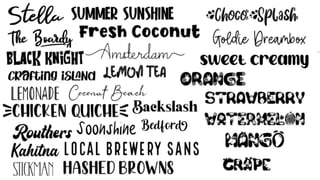 Stella
SUMMER SUNSHINE
Choco Splash
The Boardy
Fresh Coconut
Goldie Dreambox
BLACK KNIGHT
Amsterdam
sweet creamy
crafting island
LEMON TEA
ORANGE
LEMONADE
Coconut Beach
STRAWBERRY
CHICKEN QUICHE
Backslash
WATERMELON
Routhers
Soonshine
Bedford
MANGO
Kahitna
LOCAL BREWERY SANS
GRAPE
STICKMAN
HASHED BROWNS